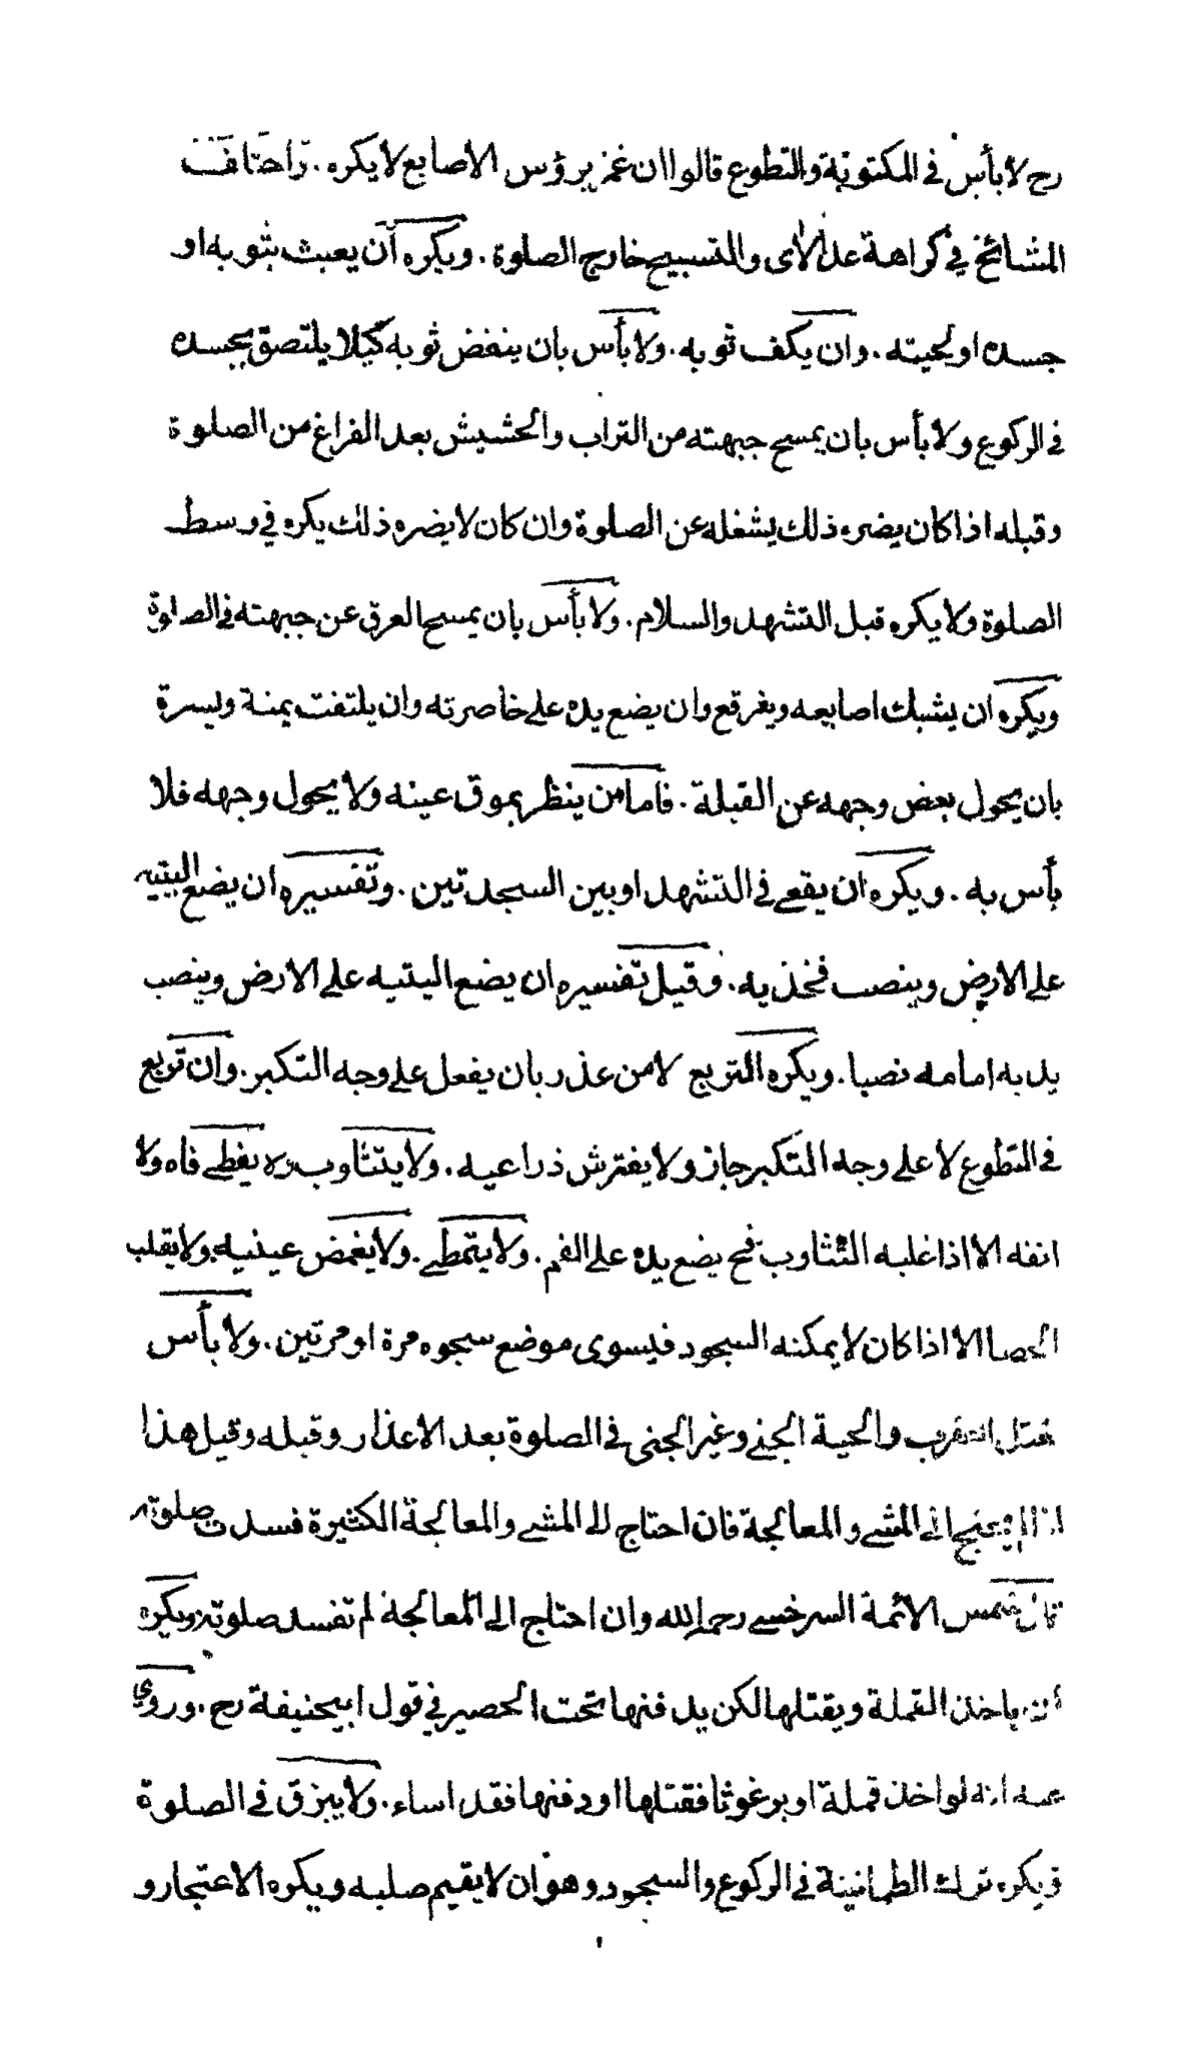 رح لا بأس في المكتوبة والتطوع قالوا ان غمز برؤس الاصابع لا يكره . واختلفت
المشائخ في كراهة عد الآى والتسبيح خارج الصلوة . ويكره أن يعبث بثوبه او
جسده او لحيته . وان يكف ثوبه . ولا بأس بان ينفض ثوبه كيلا يلتصق بجسده
في الركوع ولا بأس بان يمسح جبهته من التراب والحشيش بعد الفراغ من الصلوة
وقبله اذا كان يضره ذلك يشغله عن الصلوة وان كان لا يضره ذلك يكره في وسط
الصلوة ولا يكره قبل التشهد والسلام . ولا بأس بان يمسح العرق عن جبهته في الصلوة
ويكره ان يشبك اصابعه ويفرقع وان يضع يده على خاصرته وان يلتفت يمنة ويسرة
بان يحول بعض وجهه عن القبلة . فاما من ينظر بموق عينه ولا يحول وجهه فلا
بأس به . ويكره ان يقعى في التشهد او بين السجدتين . وتفسيره ان يضع اليتيه
على الارض وينصب فخذيه . وقيل تفسيره ان يضع اليتيه على الارض وينصب
يديه امامه نصبا . ويكره التربع لا من عذر بان يفعل على وجه التكبر . وان تربع
في التطوع لا على وجه التكبر جاز ولا يفترش ذراعيه . ولا يتثاوب ولا يغطى فاه ولا
انفه الا اذا غلبه التثاوب فح يضع يده على الفم . ولا يتمطى . ولا يغمض عينيه ولا يقلب
الحصا الا اذا كان لا يمكنه السجود فيسوى موضع سجوه مرة او مرتين . ولا بأس
بقتل العقرب والحية الجنى وغير الجنى في الصلوة بعد الاعذار وقبله وقيل هذا
اذا لم يحتج الى المشى والمعالجة فان احتاج الى المشى والمعالجة الكثيرة فسدت صلوته
قال شمس الائمة السرخسى رحمه الله وان احتاج الى المعالجة لم تفسد صلوته ويكره
أن ياخذ القملة ويقتلها لكن يدفنها تحت الحصير في قول ابيحنيفة رح . وروي
عنه انه لو اخذ قملة او برغوثا فقتلها او دفنها فقد اساء . ولا يبزق في الصلوة
ويكره ترك الطمانينة في الركوع والسجود وهو ان لا يقيم صلبه ويكره الاعتجار و